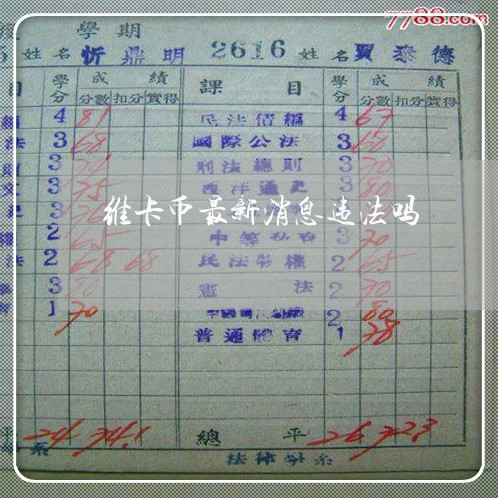 7788.com
學期
姓名 忻鼎明 2616 姓名 賈泰德
目 學分 成績 課目 學分 成績
分數 扣分 實得 分數 扣分 實得
4 81 民法債編 4 67
法 3 68 國際公法 3 60
3 刑法總則 3 70
3 75 西洋通史 3 80
維卡币最新消息违法吗
2 65 中等 3 70
法 2 68 68 民法物權 2 65
3 80 憲法 2 70
1 70 2 80
普通體育 1 78
平 24 74.1 總平 26 72.3
系 法律學系